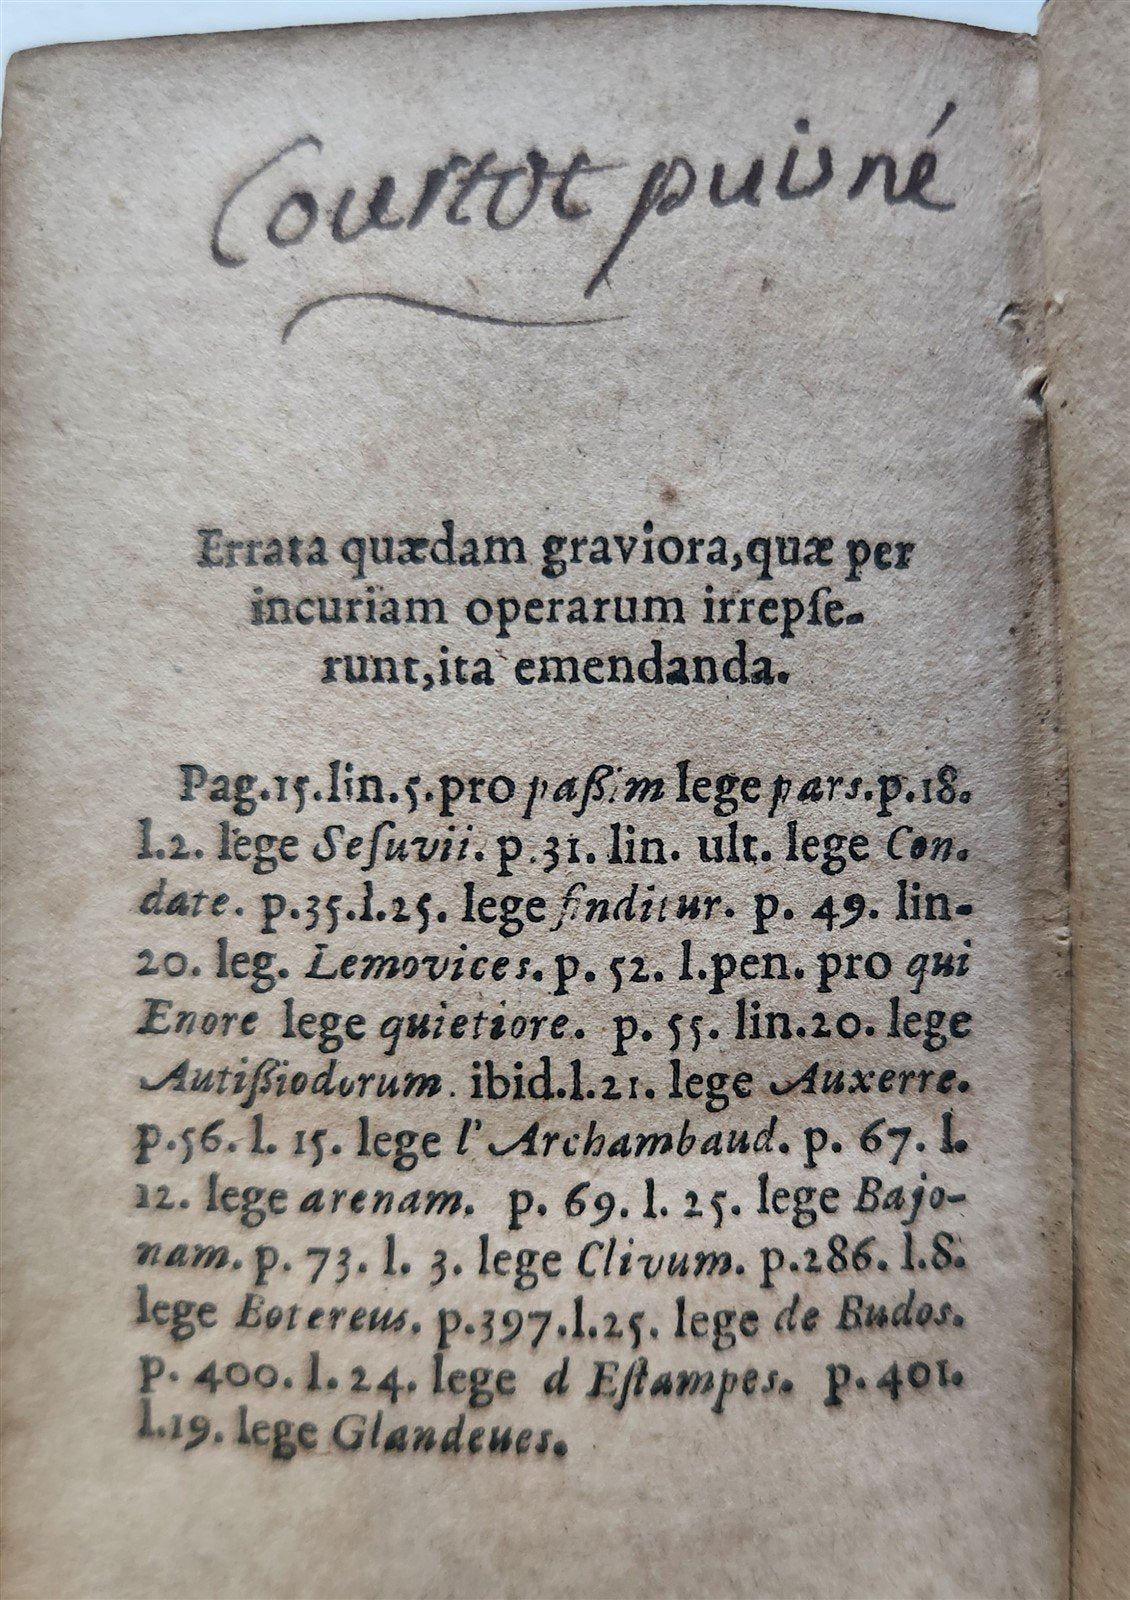 Courtot puisné
Errata quædam graviora, quæ per
incuriam operarum irrepſe-
runt, ita emendanda.
Pag.15.lin.5.pro paßim lege pars.p.18.
l.2. lege Seſuvii. p.31. lin. ult. lege Con-
date. p.35.l.25. lege finditur. p. 49. lin-
20. leg. Lemovices. p. 52. l.pen. pro qui
Enore lege quietiore. p. 55. lin.20. lege
Autißiodorum. ibid.l.21. lege Auxerre.
p.56. l. 15. lege l' Archambaud. p. 67. l.
12. lege arenam. p. 69. l. 25. lege Bajo-
nam. p. 73. l. 3. lege Clivum. p.286. l.8.
lege Botereus. p.397.l.25. lege de Budos.
p. 400. l. 24. lege d Eſtampes. p. 401.
l.19. lege Glandeues.